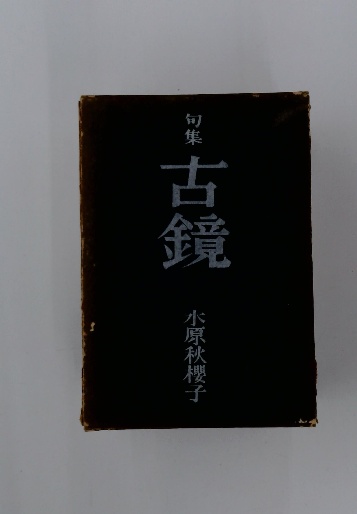 句集
古鏡
水原秋櫻子